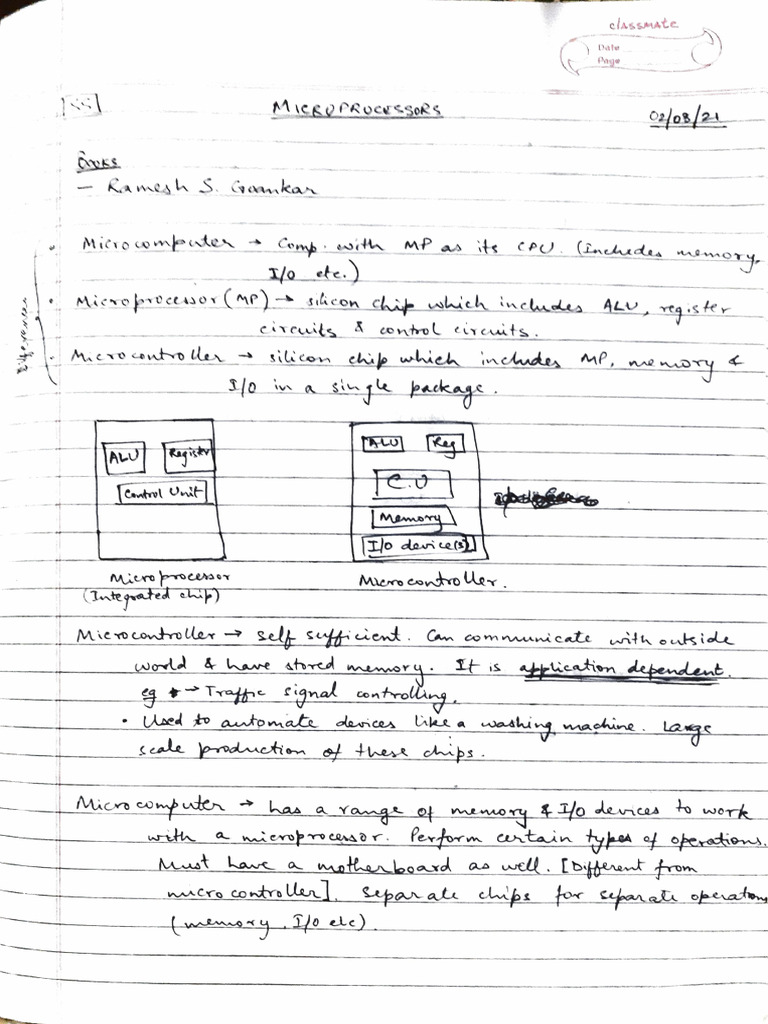 classmate
Date
Page
MICROPROCESSORS
02/08/21
Books
— Ramesh S. Gaonkar
Microcomputer → Comp. with MP as its CPU. (Includes memory,
I/O etc.)
Microprocessor (MP) → silicon chip which includes ALU, register
circuits & control circuits.
Microcontroller → silicon chip which includes MP, memory &
I/O in a single package.
ALU Register
Control Unit
Microprocessor
(Integrated chip)
ALU Reg
C.U
Memory
I/O device(s)
Microcontroller.
Microcontroller → self sufficient. Can communicate with outside
world & have stored memory. It is application dependent.
eg → Traffic signal controlling.
• Used to automate devices like a washing machine. Large
scale production of these chips.
Microcomputer → has a range of memory & I/O devices to work
with a microprocessor. Perform certain types of operations.
Must have a motherboard as well. [Different from
microcontroller]. Separate chips for separate operations
(memory, I/O etc).